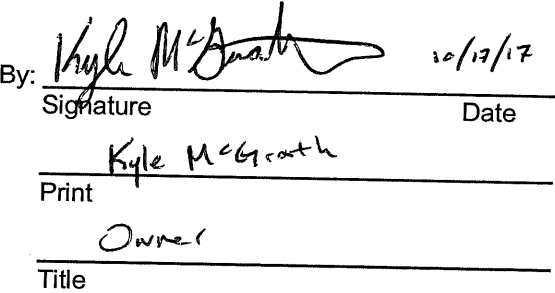 By: Kyle McGrath 10/17/17
Signature Date
Kyle McGrath
Print
Owner
Title